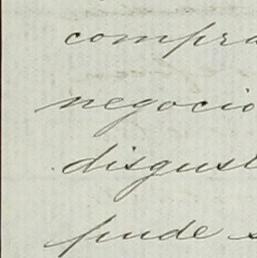 compra
negocio
disgust
pude s